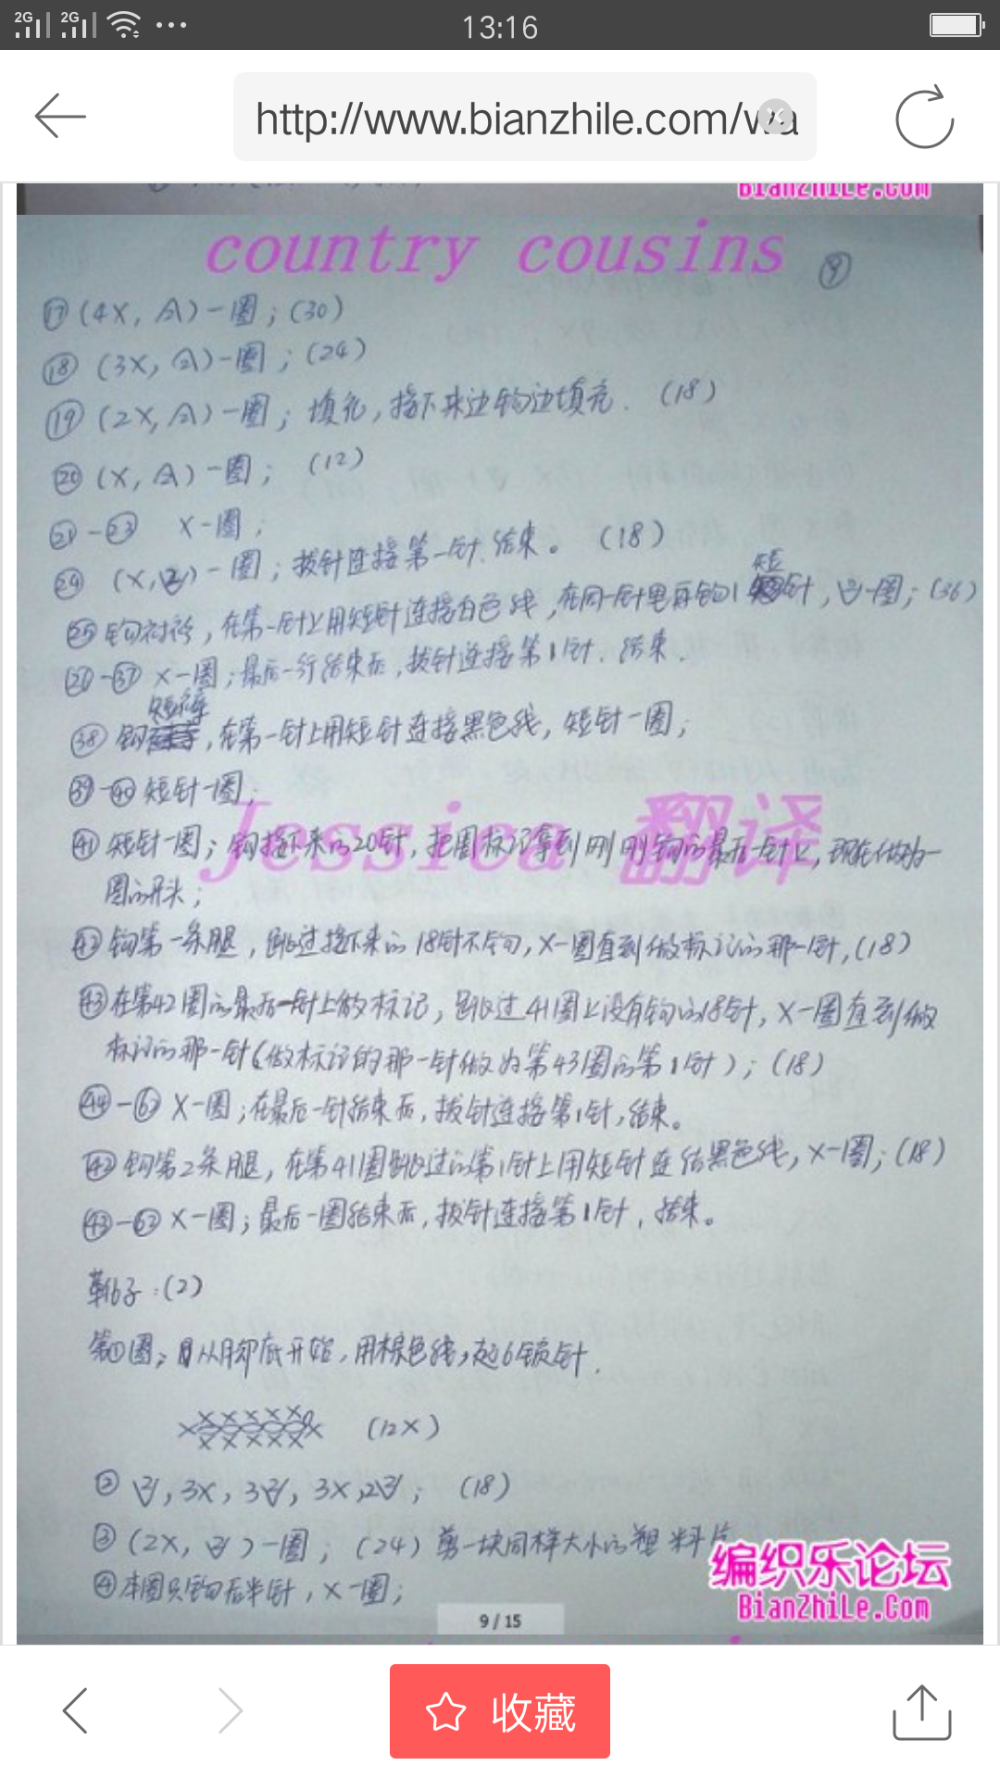 2G 2G 13:16
http://www.bianzhile.com/wa
BianZhiLe.Com
country cousins
⑨
⑰ (4X, A) 一圈; (30)
⑱ (3X, A) 一圈; (24)
⑲ (2X, A) 一圈; 填充, 接下来边钩边填充. (18)
⑳ (X, A) 一圈; (12)
㉑-㉓ X一圈;
㉔ (X, V) 一圈; 拔针连接第一针, 结束。 (18)
短
㉕ 钩衬衫, 在第一针上用短针连接白色线, 在同一针里再钩1针, V一圈; (36)
-㊲ X一圈; 最后一行结束后, 拔针连接第1针, 结束.
短裤
㊳ 钩, 在第一针上用短针连接黑色线, 短针一圈;
㊴-㊵ 短针一圈;
Jessica 翻译
㊶ 短针一圈; 钩接下来的20针, 把圈标记拿到刚刚钩的最后一针上, 现在做为一
圈的开头;
㊷ 钩第一条腿, 跳过接下来的18针不钩, X一圈直到做标记的那一针, (18)
㊸ 在第42圈的最后一针上做标记, 跳过41圈上没有钩的18针, X一圈直到做
标记的那一针(做标记的那一针做为第43圈的第1针); (18)
㊹-62 X一圈; 在最后一针结束后, 拔针连接第1针, 结束。
㊷ 钩第2条腿, 在第41圈跳过的第1针上用短针连结黑色线, X一圈; (18)
㊸-62 X一圈; 最后一圈结束后, 拔针连接第1针, 结束。
靴子: (2)
第①圈; 从脚底开始, 用棕色线, 起6锁针.
(12X)
② V, 3X, 3V, 3X, 2V; (18)
③ (2X, V) 一圈; (24) 剪一块同样大小的塑料片
④ 本圈只钩后半针, X一圈;
编织乐论坛
BianZhiLe.Com
9 / 15
收藏